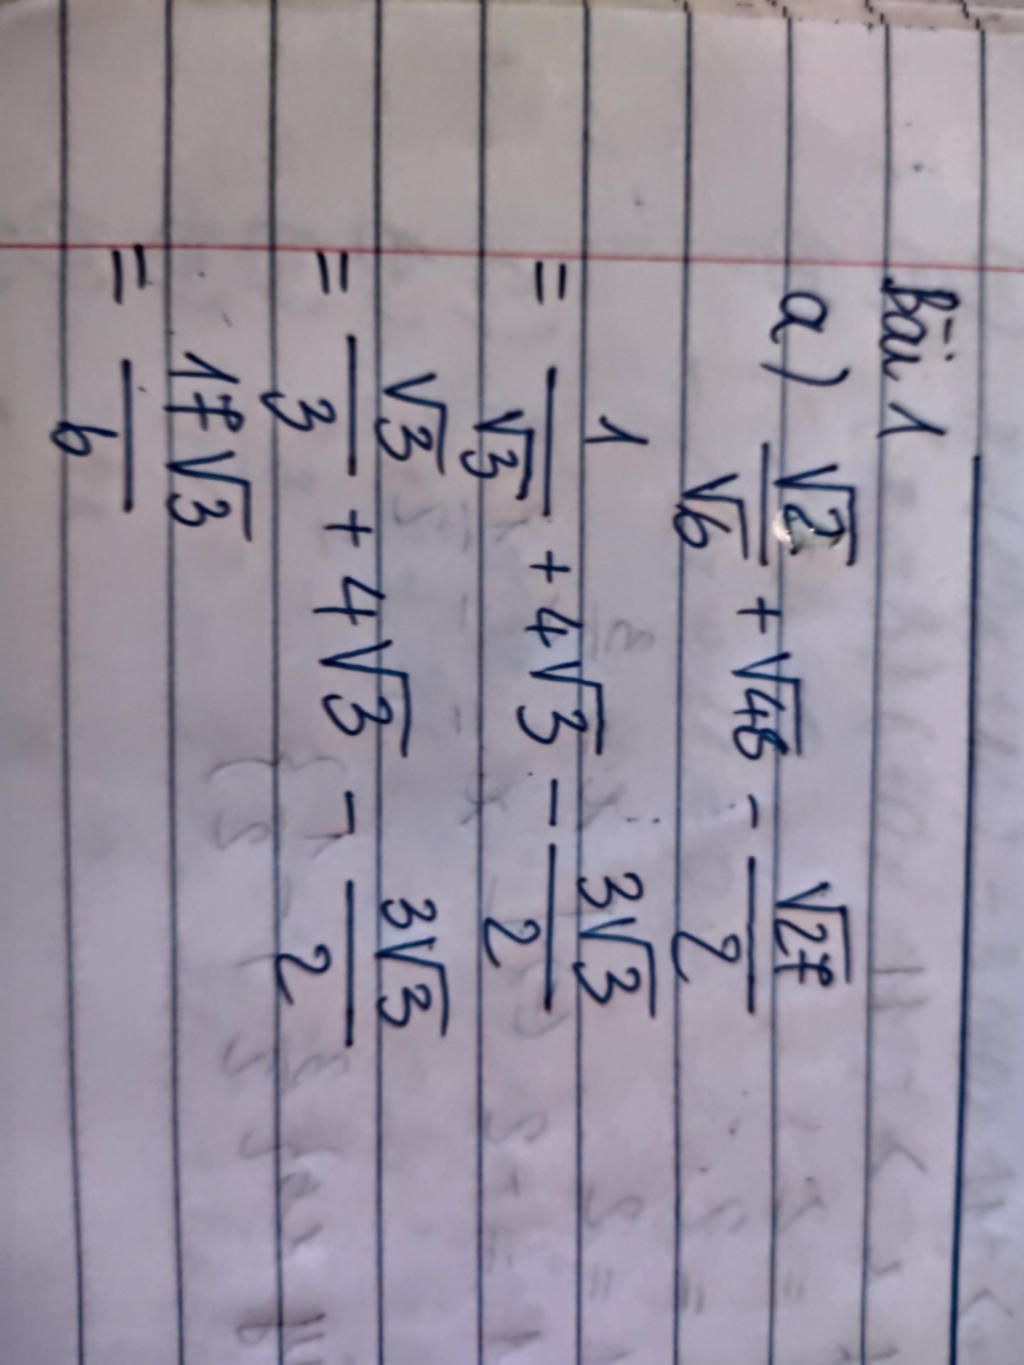 Bài 1
a) √2/√6 + √48 - √27/2
= 1/√3 + 4√3 - 3√3/2
= √3/3 + 4√3 - 3√3/2
= 17√3/6